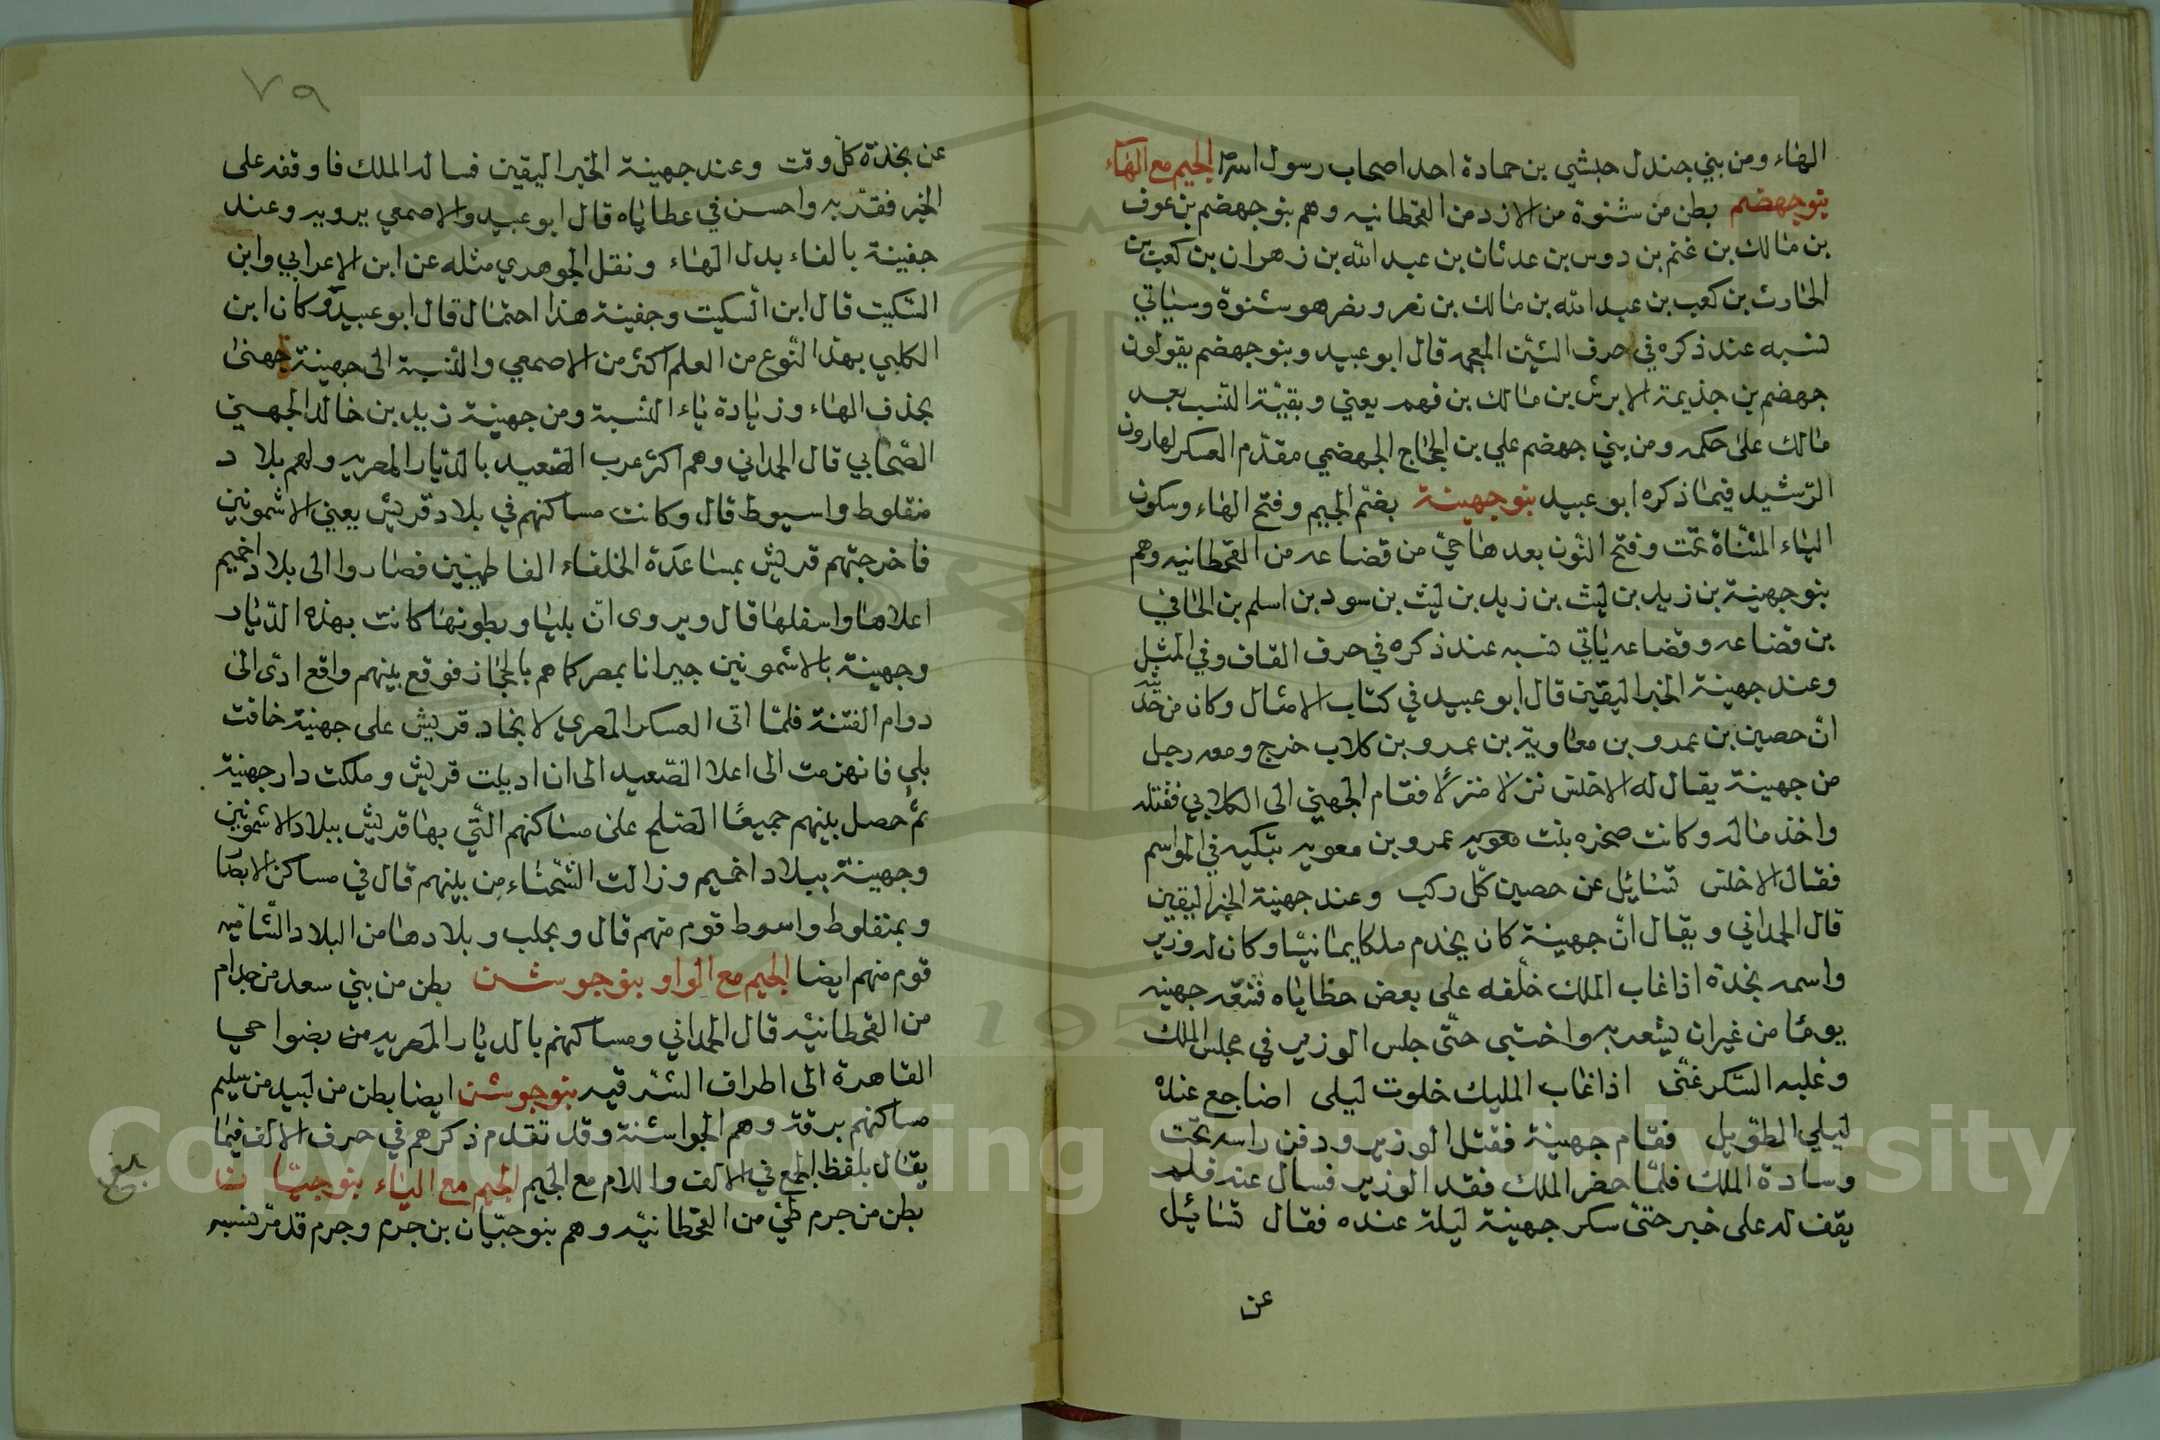 الهاء ومن بني جندل حبشي بن حمادة احد اصحاب رسول الله الجيم مع الهاء
بنو جهضم بطن من شنوة من الازد من القحطانيه وهم بنو جهضم بن عوف
بن مالك بن غنم بن دوس بن عدثان بن عبد الله بن زهران بن كعب بن
الحارث بن كعب بن عبد الله بن مالك بن نصر ونصر هو شنوة وسياتي
نسبه عند ذكره في حرف الشين المعجمه قال ابو عبيد وبنو جهضم يقولون
جهضم بن جذيمة الابرش بن مالك بن فهم يعني وبقية النسب بعد
مالك على حكمه ومن بني جهضم علي بن الحجاج الجهضمي مقدم العسكر لهارون
الرشيد فيما ذكره ابو عبيد بنو جهينة بضم الجيم وفتح الهاء وسكون
الياء المثناة تحت وفتح النون بعدها حي من قضاعه من القحطانيه وهم
بنو جهينة بن زيد بن ليث بن زيد بن ليث بن سود بن اسلم بن الحافي
بن قضاعه وقضاعه ياتي نسبه عند ذكره في حرف القاف وفي المثل
وعند جهينة الخبر اليقين قال ابو عبيد في كتاب الامثال وكان من حديثه
ان حصين بن عمرو بن معاوية بن عمرو بن كلاب خرج ومعه رجل
من جهينة يقال له الاخلس نزلا منزلا فقام الجهني الى الكلابي فقتله
واخذ ماله وكانت صخره بنت معويه عمرو بن معويه تبكيه في المواسم
فقال الاخلس تسايل عن حصين كل ركب وعند جهينة الخبر اليقين
قال الحمداني ويقال ان جهينة كان يخدم ملكا يمانيا وكان له وزير
واسمه بخدة اذا غاب الملك خلفه على بعض حظاياه فتبعه جهينه
يوما من غير ان يشعر به واختبى حتى جلس الوزير في مجلس الملك
وغلبه السكر غنى اذا غاب المليك خلوت ليلى اضاجع عنده
ليلي الطويل فقام جهينة فقتل الوزير ودفن راسه تحت
وسادة الملك فلما حضر الملك فقد الوزير فسال عنه فلم
يقف له على خبر حتى سكر جهينة ليلة عنده فقال تسايل
عن
٧٩
عن بخدة كل وقت وعند جهينة الخبر اليقين فساله الملك فاوقفه على
الخبر فقربه واحسن في عطاياه قال ابو عبيد والاصمعي يرويه وعند
جفينة بالفاء بدل الهاء ونقل الجوهري مثله عن ابن الاعرابي وابن
السكيت قال ابن السكيت وجفينة هذا احتمال قال ابو عبيد وكان ابن
الكلبي بهذا النوع من العلم اكثر من الاصمعي والنسبة الى جهينة جهني
بحذف الهاء وزيادة ياء النسبة ومن جهينة زيد بن خالد الجهني
الصحابي قال الحمداني وهم اكثر عرب الصعيد بالديار المصريه ولهم بلاد
منفلوط واسيوط قال وكانت مساكنهم في بلاد قريش يعني الاشمونين
فاخرجتهم قريش بمساعدة الخلفاء الفاطميين فصاروا الى بلاد اخميم
اعلاها واسفلها قال ويروى ان بليا وبطونها كانت بهذه الديار
وجهينة بالاشمونين جيرانا بمصر كما هم بالحجاز فوقع بينهم واقع ادى الى
دوام الفتنة فلما اتى العسكر المصري لانجاد قريش على جهنية خافت
بلي فانهزمت الى اعلا الصعيد الى ان اديلت قريش وملكت دار جهنية
ثم حصل بينهم جميعا الصلح على مساكنهم التي بها قريش ببلاد الاشمونين
وجهينة ببلاد اخميم وزالت الشحناء من بينهم قال في مساكن الابصار
وبمنفلوط واسوط قوم منهم قال وبحلب وبلادها من البلاد الشاميه
قوم منهم ايضا الجيم مع الواو بنو جوشن بطن من بني سعد من جذام
من القحطانيه قال الحمداني ومساكنهم بالديار المصريه من بضواحي
القاهرة الى اطراف الشرقيه بنو جوشن ايضا بطن من لبيد من سليم
مساكنهم ببرقة وهم الجواشنة وقد تقدم ذكرهم في حرف الالف فيما
يقال بلفظ الجمع في الالف واللام مع الجيم الجيم مع الياء بنو جيان
بطن من جرم طي من القحطانيه وهم بنو جيان بن جرم وجرم قد مر نسبه
بلغ
Copyright © King Saud University